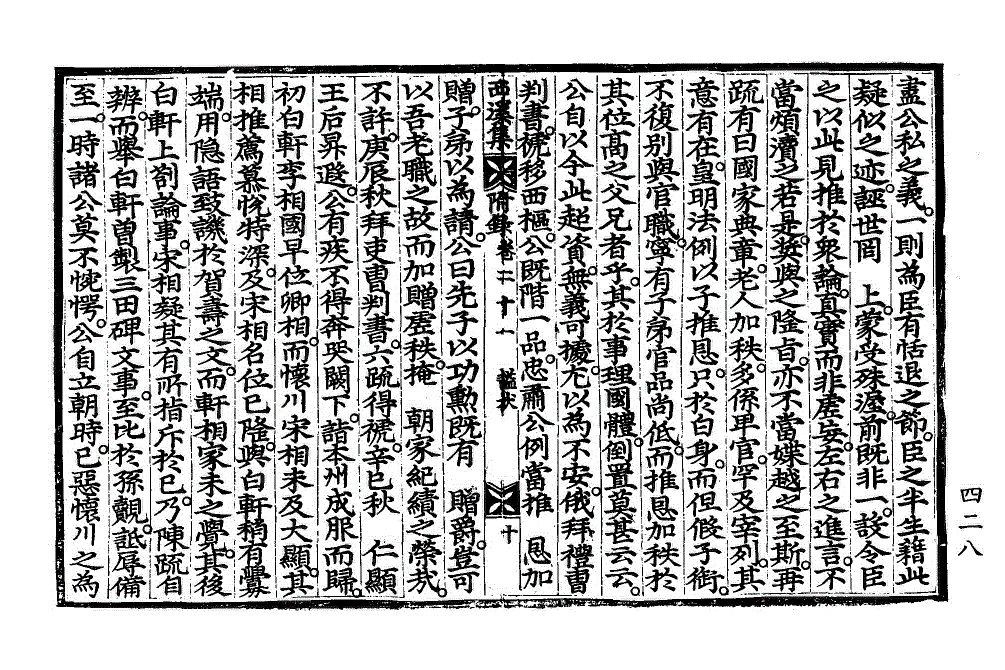 盡公私之義。一則為臣有恬退之節。臣之半生藉此
疑似之迹。誣世罔　上。蒙受殊渥。前既非一。設令臣
之以此見推於衆論。真實而非虛妄。左右之進言。不
當煩瀆之若是。奬與之隆旨。亦不當媟越之至斯。再
疏有曰國家典章。老人加秩。多係卑官。罕及宰列。其
意有在。皇明法例以子推恩。只於白身。而但假子銜。
不復別與官職。寧有子弟官品尚低。而推恩加秩於
其位高之父兄者乎。其於事理國體。倒置莫甚云云。
公自以今此起資。無義可據。尤以為不安。俄拜禮曹
判書。褫移西樞。公既階一品。忠肅公例當推　恩加
西溪集　附錄卷二十一　諡狀　十
贈。子弟以為請。公曰先子以功勳既有　贈爵。豈可
以吾老職之故而加贈虛秩。掩　朝家紀績之榮哉。
不許。庚辰秋拜吏曹判書。六疏得褫。辛巳秋　仁顯
王后昇遐。公有疾不得奔哭闕下。詣本州成服而歸。
初白軒李相國早位卿相。而懷川宋相未及大顯。其
相推薦慕悅特深。及宋相名位已隆。與白軒稍有釁
端。用隐語致譏於賀壽之文。而軒相家未之覺。其後
白軒上劄論事。宋相疑其有所指斥於己。乃陳疏自
辨。而擧白軒曾製三田碑文事。至比於孫覿。詆辱備
至。一時諸公莫不惋愕。公自立朝時。已惡懷川之為
四二八